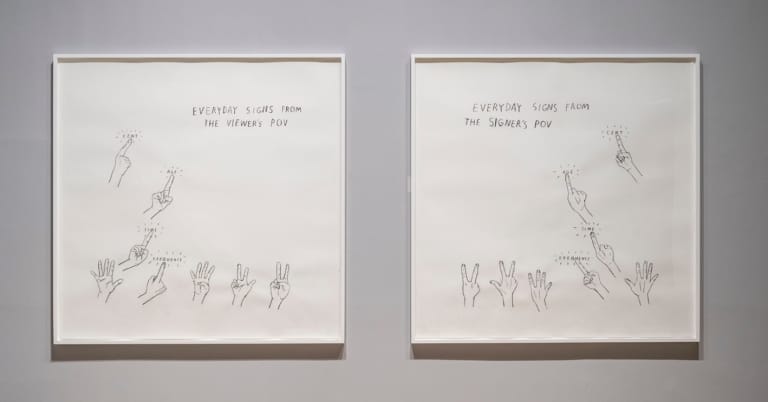 EVERYDAY SIGNS FROM
THE VIEWER'S POV
CENT
AGE
TIME
FREQUENCY
EVERYDAY SIGNS FROM
THE SIGNER'S POV
CENT
AGE
TIME
FREQUENCY